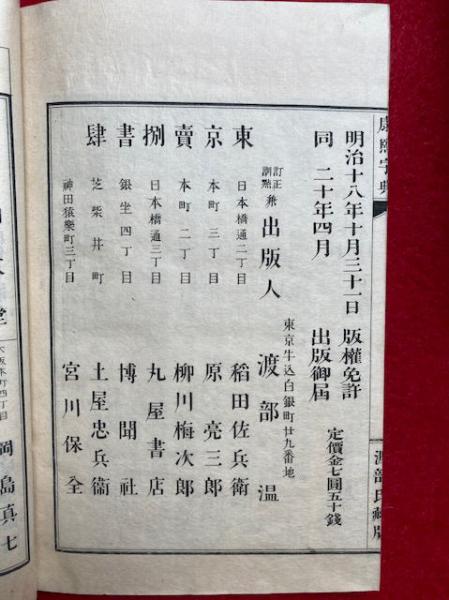 康熙字典
明治十八年十月三十一日 版權免許
同 二十年四月 出版御屆
定價金七圓五十錢
東京牛込白銀町廿九番地
訂正訓點兼出版人 渡部温
東京賣捌書肆
日本橋通二丁目 稻田佐兵衛
本町三丁目 原亮三郎
本町二丁目 柳川梅次郎
日本橋通三丁目 丸屋書店
銀坐四丁目 博聞社
芝柴井町 土屋忠兵衞
神田猿樂町三丁目 宮川保全
渡部氏藏版
堂
大阪本町四丁目 岡島真七